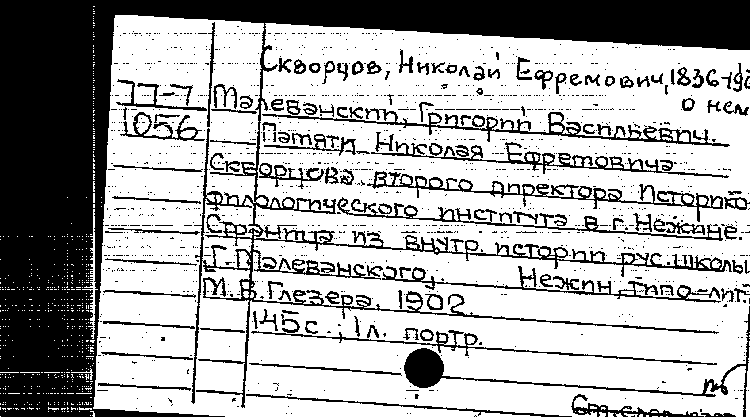 Скворцов, Николай Ефремович, 1836-19
о нем
П-7 Малеванский, Григорий Васильевич.
1056 Памяти Николая Ефремовича
Скворцова второго директора Историко-
филологического института в г. Нежине.
Страница из внутр. истории рус. школы
Г. Малеванского. Нежин, типо-лит.
М.В. Глезера, 1902.
145 с., 1 л. портр.